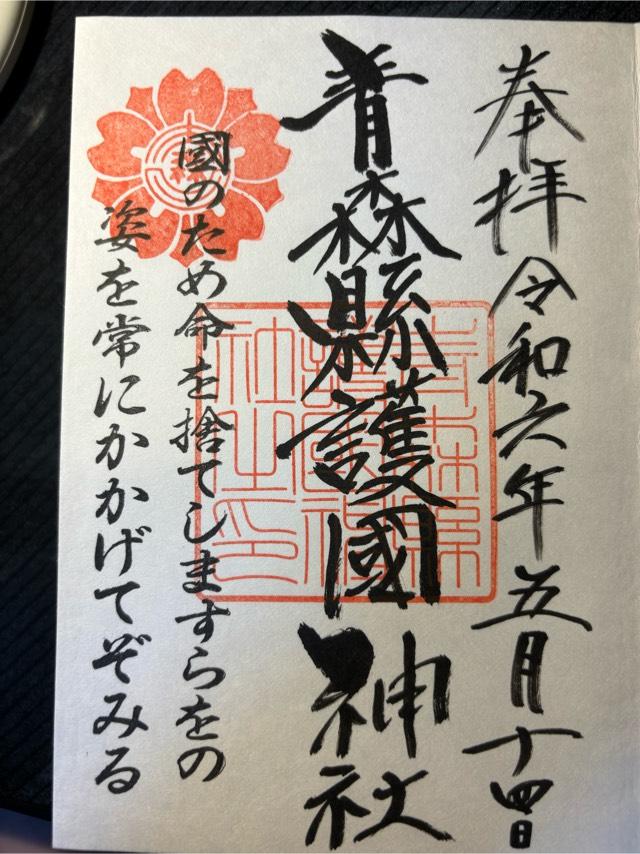 奉拝 令和六年五月十四日
青森縣護國神社
國のため命を捨てしますらをの
姿を常にかかげてぞみる
青森縣護國神社之印